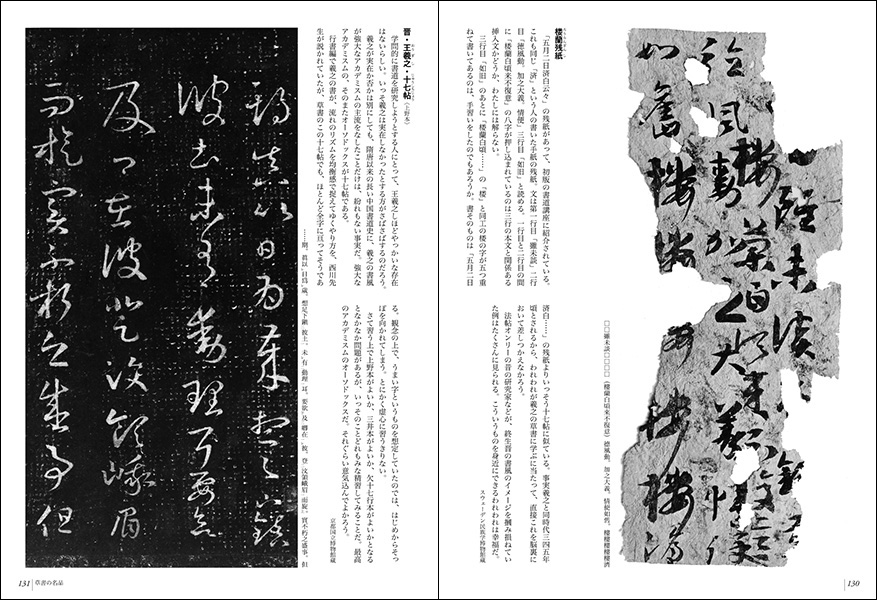 雖未談
楼蘭白頃来不復意
徳風動加之大義情
如舊楼楼楼楼楼済
□□雖未談□□□□(楼蘭白頃来不復意)徳風動、加之大義、情使如舊。楼楼楼楼楼済
楼蘭残紙
「五月二日済白云々」の残紙があって、初版の書道講座に紹介されている。
これも同じ「済」という人の書いた手紙の残紙、文は第一行目「雖未談」二行
目「徳風動、加之大義、情使」三行目「如旧」と読める。一行目と二行目の間
に「楼蘭白頃来不復意」の八字が押し込まれているのは三行の本文と関係ある
挿入文かどうか、わたしには解らない。
三行目「如旧」のあとに「楼蘭白頃……」の「楼」と同工の楼の字が五つ重
ねて書いてあるのは、手習いをしたのでもあろうか。書そのものは「五月二日
済白……」の残紙よりいっそう十七帖に似ている。事実羲之と同時代三四五年
頃とされるから、われわれが羲之の草書に学ぶに当たって、直接これを脳裏に
おいて差しつかえなかろう。
法帖オンリーの昔の研究家などが、終生昔の書風のイメージを掴み損ねてい
た例はたくさんに見られる。こういうものを身近にできるわれわれは幸福だ。
スウェーデン民族学博物館蔵
130
晋・王羲之・十七帖(上野本)
学問的に書道を研究しようとする人にとって、王羲之しほどやっかいな存在
はないらしい。いっそ羲之は実在しなかったとする方がさばさばするのだろう。
羲之が実在か否かは別にしても、隋唐以来の長い中国書道史に、羲之の書風
が強大なアカデミスムの主流をなしたことだけは、紛れもない事実だ。強大な
アカデミスムの、そのまたオーソドックスが十七帖である。
行書編で羲之の書が、流れのリズムを均衡感で捉えてゆくやり方を、西川先
生が説かれていたが、草書のこの十七帖でも、ほとんど全字に亘ってそうであ
る。観念の上で、うまい字というものを想定していたのでは、はじめからそっ
ぽを向かれてしまう。とにかく虚心に習うきりない。
さて習う上で上野本がよいか、三井本がよいか、欠十七行本がよいかとなる
となかなか問題があるが、いっそのことどれもみな精習してみることだ。最高
のアカデミスムのオーソドックスだ。それぐらい意気込んでよかろう。
京都国立博物館蔵
……期、眞以日爲歳。想足下鎭彼土、未有動理耳。要欲及卿在彼、登汶領峨眉而旋、實不朽之盛事。但
期眞以日爲歳想足下鎭
彼土未有動理耳要欲
及卿在彼登汶領峨眉
而旋實不朽之盛事但
131 草書の名品